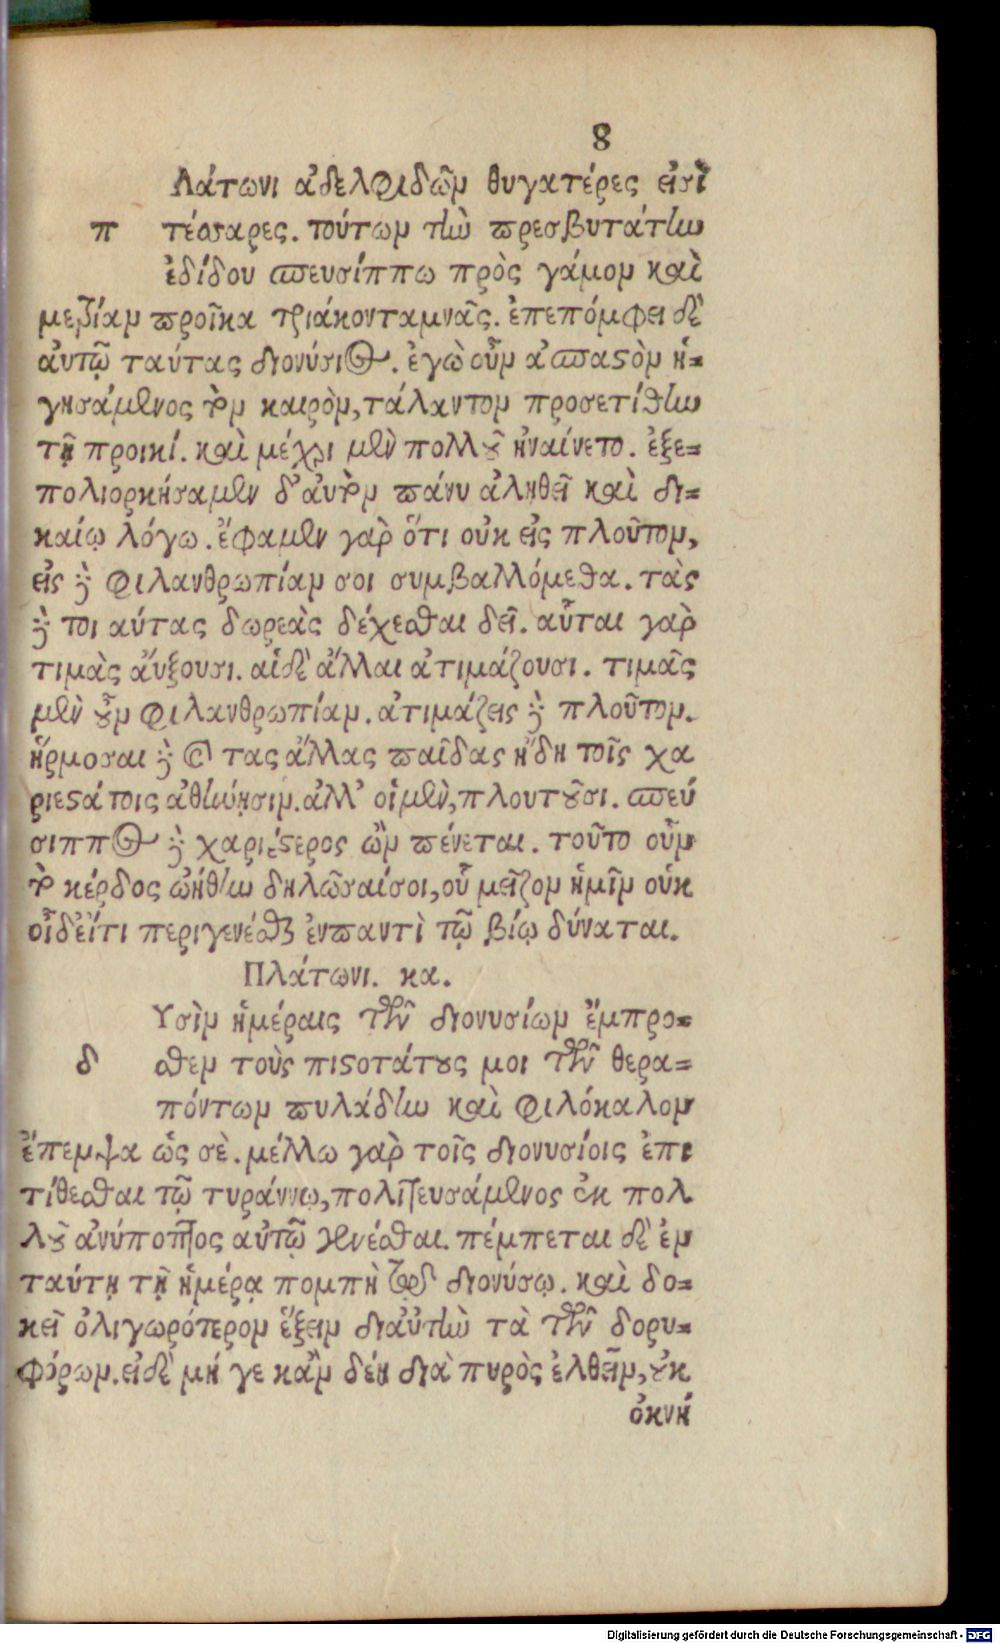 8
Λάτωνι ἀδελφιδῶν θυγατέρες εἰσὶ
π τέσσαρες. τούτων τὴν πρεσβυτάτην
ἐδίδου σπευσίππω πρὸς γάμον καὶ
μερίαν προῖκα τριάκονταμνᾶς. ἐπεπόμφει δὲ
ἀυτῷ ταύτας διονύσιος. ἐγὼ οὖν ἀσπαστὸν ἡ-
γησάμενος τὸν καιρὸν, τάλαντον προσετίθην
τῇ προικί. καὶ μέχρι μὲν πολλοῦ ἠναίνετο. ἐξε-
πολιορκήσαμεν δ' ἀυτὸν πάνυ ἀληθεῖ καὶ δι-
καίῳ λόγω. ἔφαμεν γὰρ ὅτι οὐκ εἰς πλοῦτον,
εἰς δὲ φιλανθρωπίαν σοι συμβαλλόμεθα. τὰς
δέ τοι αύτας δωρεὰς δέχεσθαι δεῖ. αὗται γὰρ
τιμὰς ἄυξουσι. αἱδὲ ἄλλαι ἀτιμάζουσι. τιμᾶς
μὲν οὖν φιλανθρωπίαν. ἀτιμάζεις δὲ πλοῦτον.
ἥρμοσαι δὲ καὶ τας ἄλλας παῖδας ἤδη τοῖς χα
ριεστάτοις ἀθήνησιν. ἀλλ' οἱμὲν, πλουτοῦσι. σπεύ
σιππος δὲ χαριέστερος ὢν πένεται. τοῦτο οὖν
τὸ κέρδος ὠήθην δηλῶσαίσοι, οὗ μεῖζον ἡμῖν οὐκ
οἶδἐίτι περιγενέσθαι ἐνπαντὶ τῷ βίῳ δύναται.
Πλάτωνι. κα.
Υσὶν ἡμέραις τῶν διονυσίων ἔμπρο-
δ σθεν τοὺς πιστοτάτους μοι τῶν θερα-
πόντων πυλάδην καὶ φιλόκαλον
ἔπεμψα ὥς σὲ. μέλλω γὰρ τοῖς διονυσίοις ἐπι
τίθεσθαι τῷ τυράννῳ, πολιτευσάμενος ἐκ πολ
λοῦ ἀνύποπτος αὐτῷ γενέσθαι. πέμπεται δὲ ἐν
ταύτῃ τῇ ἡμέρᾳ πομπὴ τῷ διονύσῳ. καὶ δο-
κεῖ ὀλιγωρότερον ἕξειν διαὐτὴν τὰ τῶν δορυ-
φόρων. εἰδὲ μή γε κἂν δέη διὰ πυρὸς ἐλθεῖν, οὐκ
ὀκνή
Digitalisierung gefördert durch die Deutsche Forschungsgemeinschaft - DFG